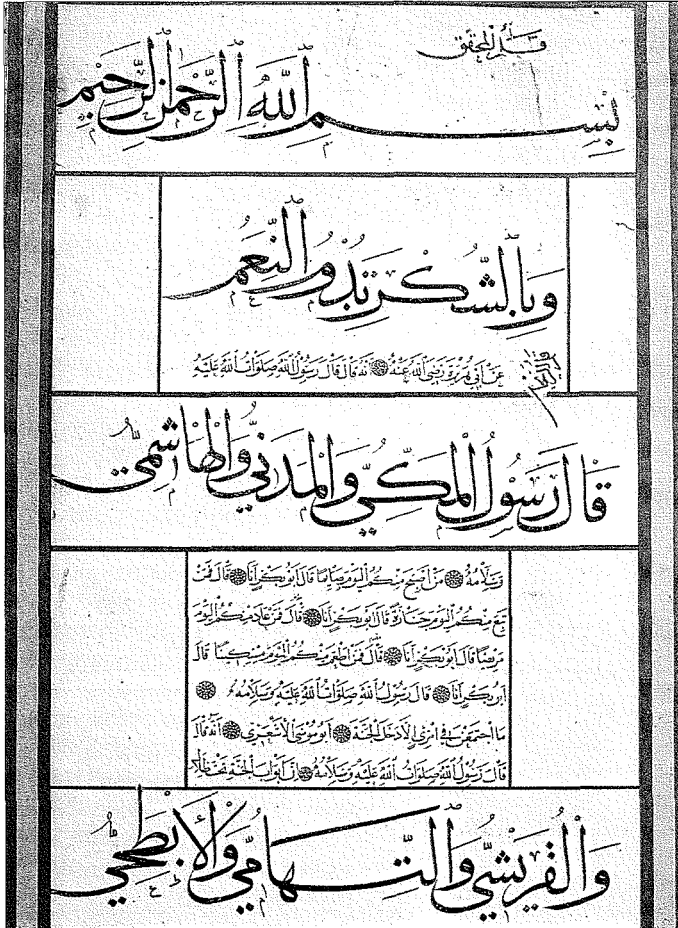 قلم المحقق
بسم الله الرحمن الرحيم
وبالشكر تدوم النعم
قلم الريحان
عن أبي هريرة رضي الله عنه أنه قال قال رسول الله صلوات الله عليه
قال رسول المكي والمدني والهاشمي
وسلامه من أصبح منكم اليوم صايما قال أبو بكر أنا قال فمن
تبع منكم اليوم جنازة قال أبو بكر أنا قال فمن عاد منكم اليوم
مريضا قال أبو بكر أنا قال فمن أطعم منكم اليوم مسكينا قال
أبو بكر أنا قال رسول الله صلوات الله عليه وسلامه
ما اجتمعن في امرئ إلا دخل الجنة أبو موسى الأشعري أنه قال
قال رسول الله صلوات الله عليه وسلامه إن أبواب الجنة تحت ظلال
والقريشي والتهامي والأبطحي